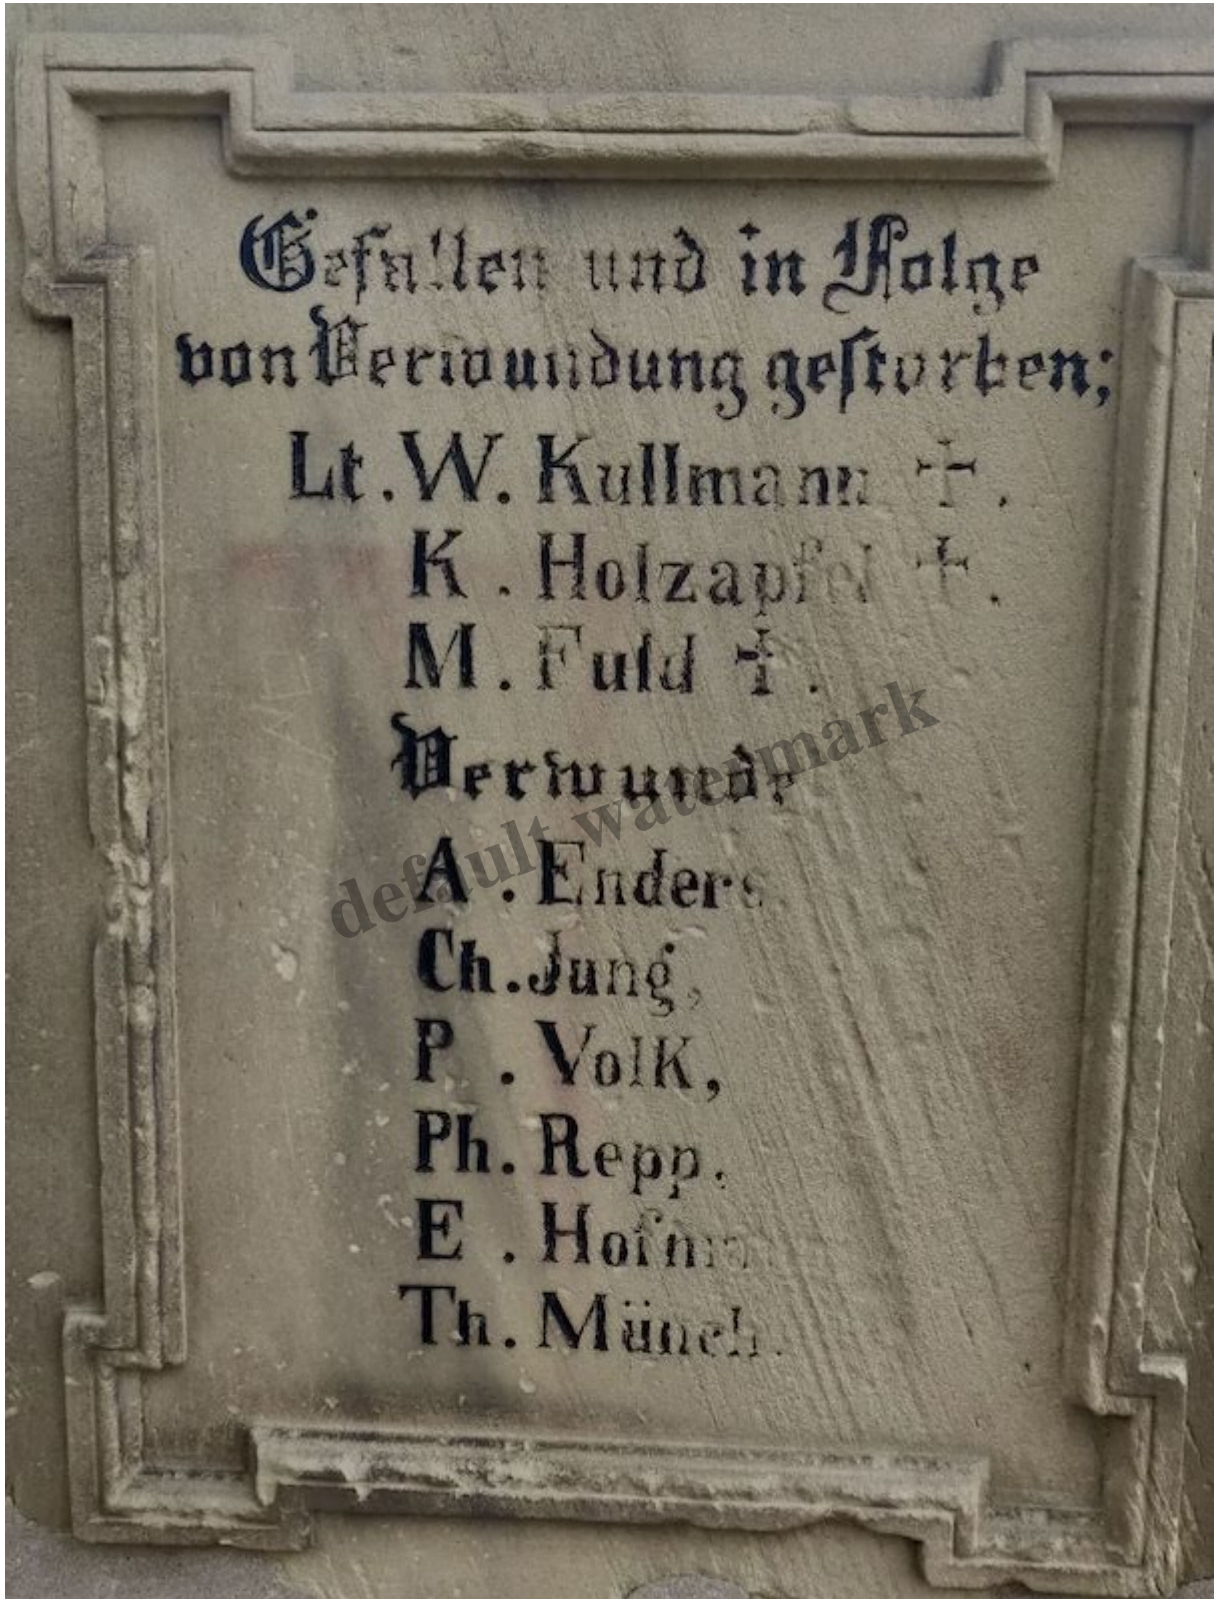 Gefallen und in Folge
von Verwundung gestorben;
Lt. W. Kullmann †.
K. Holzapfel †.
M. Fuld †.
Verwundet
A. Enders
Ch. Jung,
P. Volk,
Ph. Repp.
E.
Th. Münch.
default watermark